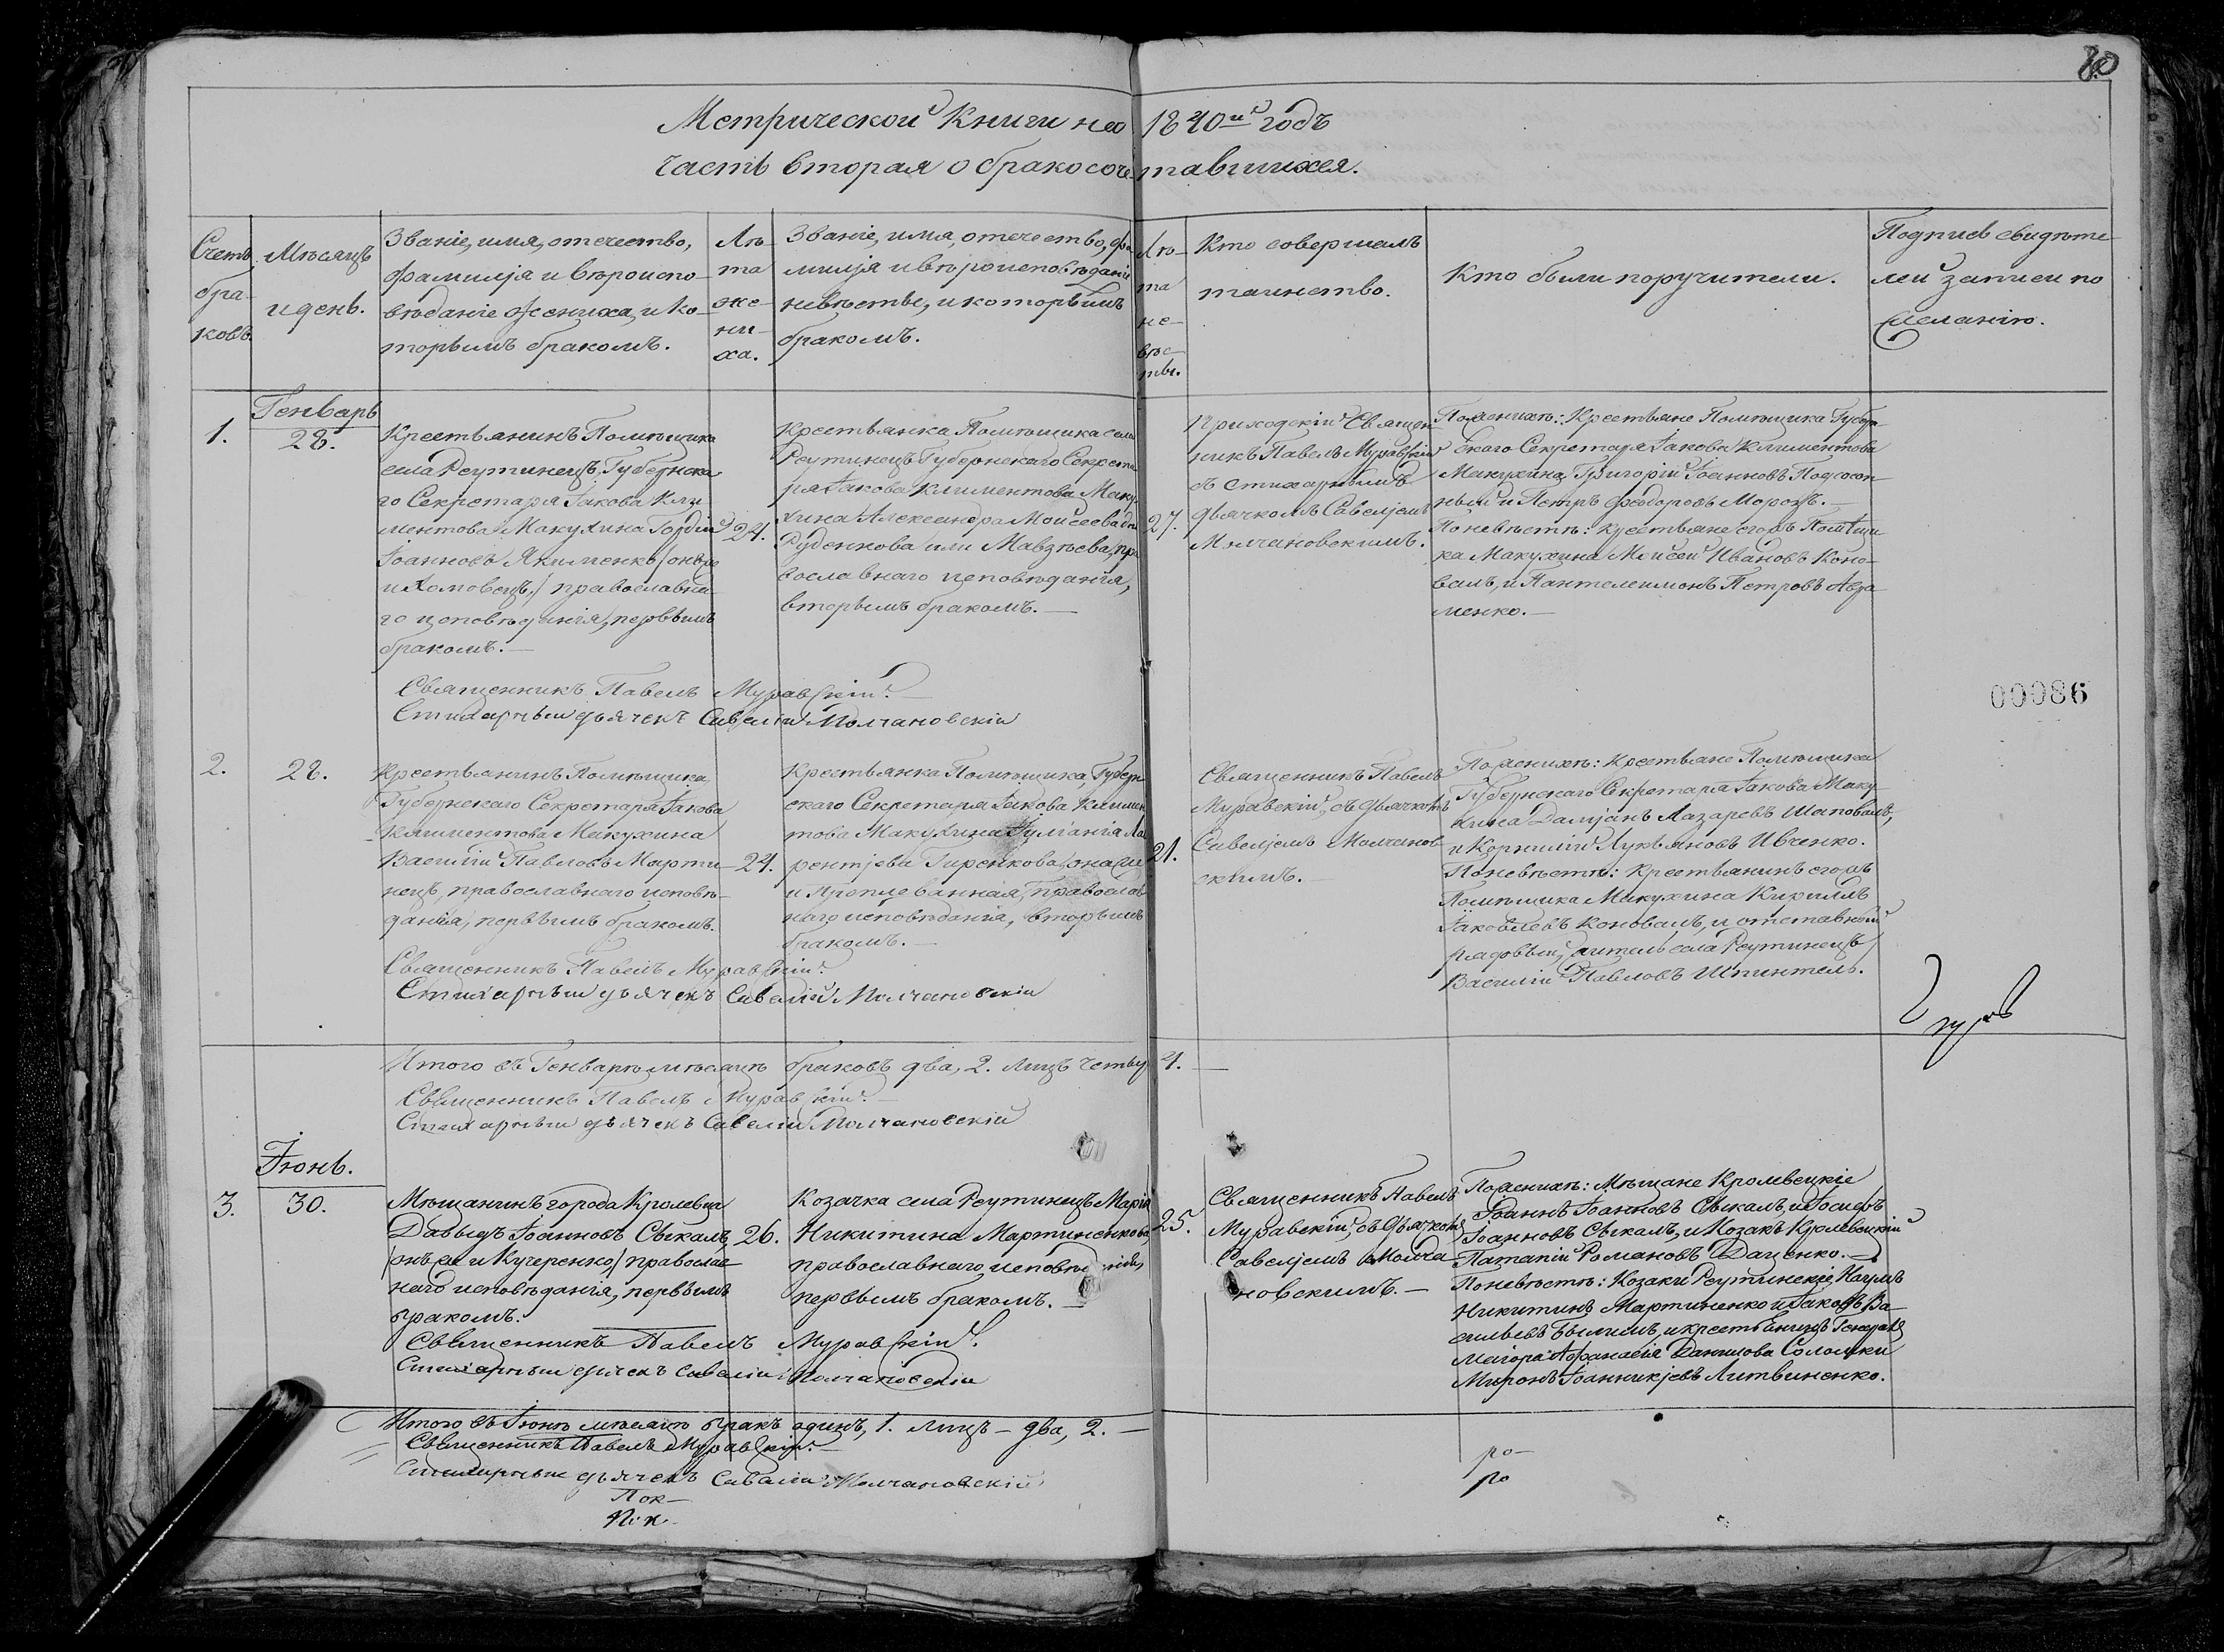 80
Метрической Книги на 1840й годъ
часть вторая о бракосочетавшихся.
Счетъ браковъ.
Мѣсяцъ и день.
Званіе, имя, отечество,
фамилія и вѣроиспо-
вѣданіе жениха, и ко-
торымъ бракомъ.
Лѣ-
та
же-
ни-
ха.
Званіе, имя, отечество, фа
милія и вѣроисповѣданіе
невѣсты, и которымъ
бракомъ.
Лѣ-
та
не-
вѣс-
ты.
Кто совершалъ
таинство.
Кто были поручители.
Подпись свидѣте
лей записи по
желанію.
Генварь
1.
28.
Крестьянинъ Помѣщика
села Реутинецъ, Губернска
го Секретаря Іакова Кли
ментова Макухина Гордій
Іоанновъ Якименко /онъ же
и Хомовецъ,/ православна
го исповѣданія, первымъ
бракомъ.—
24.
Крестьянка Помѣщика села
Реутинецъ Губернскаго Секрета
ря Іакова Климентова Маку-
хина Александра Моисеева
Руденкова или Мавзѣева, пра
вославнаго исповѣданія,
вторымъ бракомъ.—
27.
Приходскій Священ
никъ Павелъ Муравскій
съ стихарнымъ
дьячкомъ Савеліемъ
Молчановскимъ.
По женихѣ: Крестьяне Помѣщика Губерн
скаго Секретаря Іакова Климентова
Макухина, Григорій Іоанновъ Подсосон
ный и Петръ Феодоровъ Морозъ.—
По невѣстѣ: Крестьяне егожъ Помѣщи
ка Макухина Моисей Ивановъ Коно-
валъ, и Пантелеимонъ Петровъ Авра
менко.—
Священникъ Павелъ Муравскій.
Стихарный дьячекъ Савелій Молчановскій
00086
2.
28.
Крестьянинъ Помѣщика,
Губернскаго Секретаря Іакова
Климентова Макухина
Василій Павловъ Марти-
нецъ, православнаго исповѣ-
данія, первымъ бракомъ.
24.
Крестьянка Помѣщика, Губерн
скаго Секретаря Іакова Климен
това Макухина Іуліанія Ла
рентіева Гиренкова /она же
и Проплеванная,/ православ
наго исповѣданія, вторымъ
бракомъ.—
21.
Священникъ Павелъ
Муравскій, съ дьячкомъ
Савеліемъ Молчанов
скимъ.—
По женихѣ: Крестьяне Помѣщика
Губернскаго Секретаря Іакова Маку
хина Даміанъ Лазаревъ Шаповалъ,
и Корнилій Лукьяновъ Ивченко.
По невѣстѣ: Крестьянинъ егожъ
Помѣщика Макухина Кириллъ
Іаковлевъ Коновалъ, и отставной
рядовый, житель села Реутинецъ/
Василій Павловъ Шпинтель.
Священникъ Павелъ Муравскій.
Стихарный дьячекъ Савелій Молчановскій
Итого въ Генварѣ мѣсяцѣ браковъ два, 2. лицъ четыр 4.—
Священникъ Павелъ Муравскій.—
Стихарный дьячекъ Савелій Молчановскій
Іюнь.
3.
30.
Мѣщанинъ города Кролевца
Давыдъ Іоанновъ Свкалъ,
/онъ же и Кучеренко/ православ
наго исповѣданія, первымъ
бракомъ.
26.
Козачка села Реутинецъ Марія
Никитина Мартиненкова
православнаго исповѣданія,
первымъ бракомъ.—
25.
Священникъ Павелъ
Муравскій, съ дьячкомъ
Савеліемъ Молча
новскимъ.—
По женихѣ: Мѣщане Кролевецкіе
Іоаннъ Іоанновъ Свкалъ, и Іосифъ
Іоанновъ Свкалъ, и Козакъ Кролевецкій
Патапій Романовъ Даценко.—
По невѣстѣ: Козаки Реутинскіе, Наумъ
Никитинъ Мартиненко и Іаковъ Ва-
сильевъ Былимъ, и крестьянинъ Генералъ
Маіора Афанасія Данилова Солошки
Миронъ Іоанникіевъ Литвиненко.
Священникъ Павелъ Муравскій.
Стихарный дьячекъ Савелій Молчановскій
Итого въ Іюнѣ мѣсяцѣ бракъ одинъ, 1. лицъ — два, 2.—
Священникъ Павелъ Муравскій.—
Стихарный дьячекъ Савелій Молчановскій
по-
по